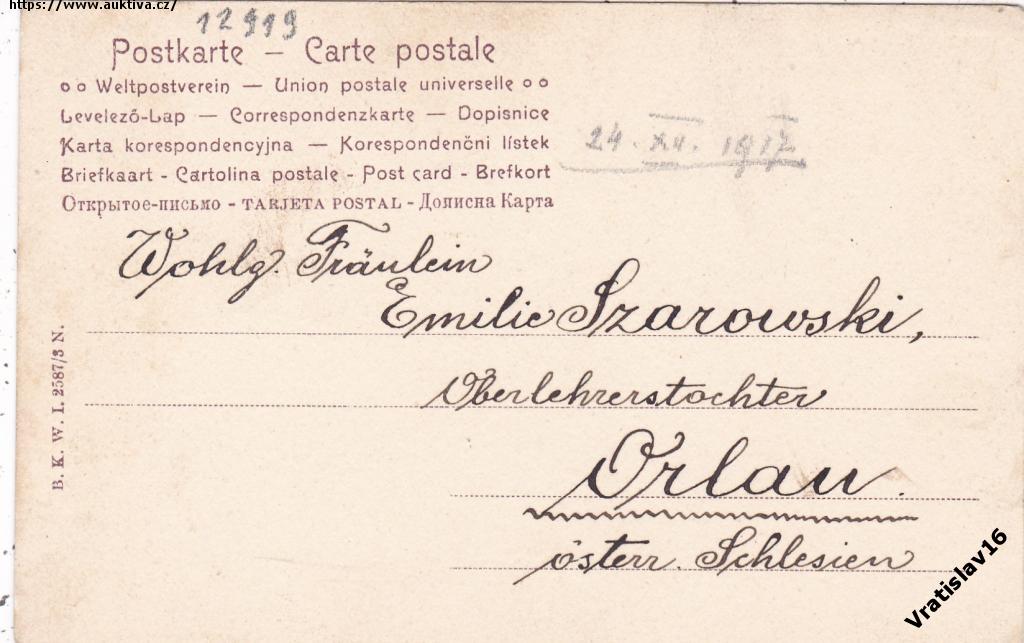 https://www.auktiva.cz/
12919
Postkarte — Carte postale
Weltpostverein — Union postale universelle
Levelező-Lap — Correspondenzkarte — Dopisnice
Karta korespondencyjna — Korespondenčni lístek
Briefkaart - Cartolina postale - Post card - Brefkort
Открытое-письмо - TARJETA POSTAL - Дописна Карта
24. XII. 1917
Wohlg. Fräulein
Emilie Szarowski,
Oberlehrerstochter
Orlau.
österr. Schlesien
B. K. W. I. 2587/3 N.
Vratislav16